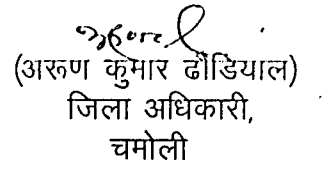 (अरूण कुमार ढौंडियाल)
जिला अधिकारी,
चमोली